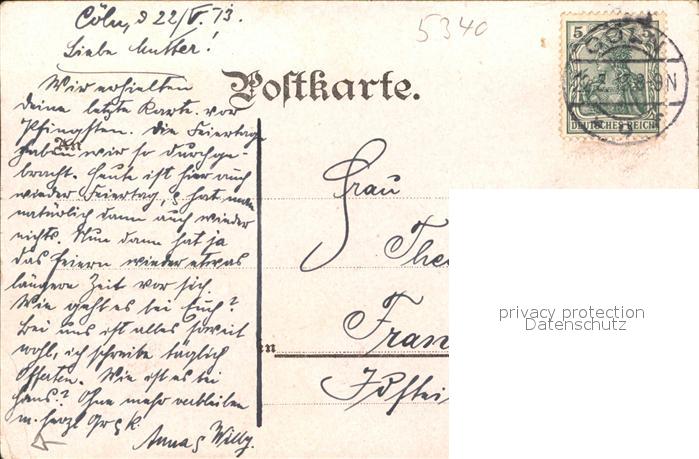 Cöln, d 22/V. 13.
Liebe Mutter!
5340
Postkarte.
5
CÖLN
DEUTSCHES REICH
Wir erhielten
deine letzte Karte vor
Pfingsten. Die Feiertage
An
haben wir so durchge-
bracht. Heute ist hier auch
wieder Feiertag, & hat man
natürlich dann auch wieder
nichts. Nun dann hat ja
das feiern wieder etwas
längere Zeit vor sich.
Wie geht es bei Euch?
Bei uns ist alles soweit
wohl, ich schreibe täglich
Offerten. Wie ist es bei
Hans? Ohne mehr verbleiben
m. herzl Gr & K.
Anna & Willy.
Frau
The
Fran
in
privacy protection
Datenschutz